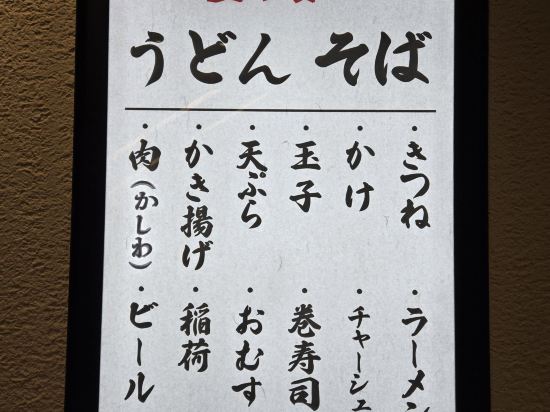 うどん そば
・きつね
・かけ
・玉子
・天ぷら
・かき揚げ
・肉(かしわ)
・ラーメン
・チャーシュ
・巻寿司
・おむす
・稲荷
・ビール